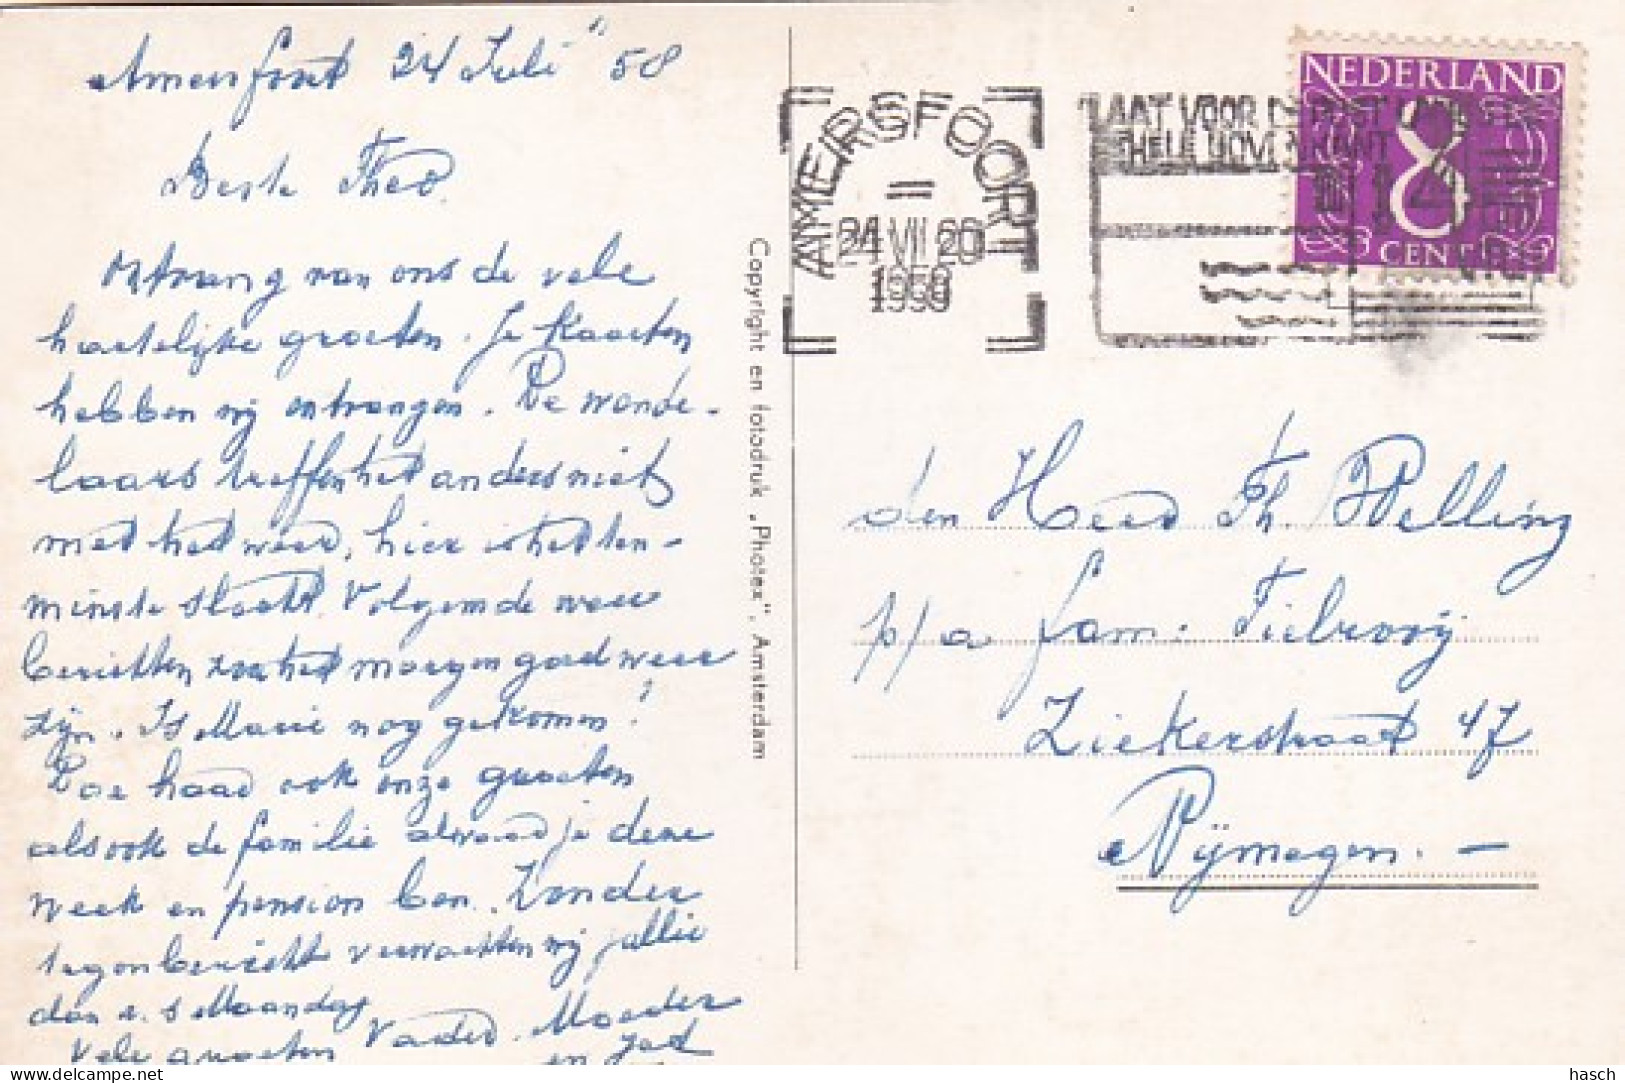 Amersfoort 24 Juli "58
Beste Theo
Ontvang van ons de vele
hartelijke groeten. Je kaarten
hebben wij ontvangen. De wande-
laars treffen het anders niet
met het weer, hier is het ten-
minste slecht. Volgens de weer
berichten zou het morgen goed weer
zijn. Is Marie nog gekomen?
Doe haar ook onze groeten
alsook de familie alwaar je deze
week en pension ben. Zonder
tegenbericht verwachten wij jullie
dan e.s Maandag
Vele groeten Vader. Moeder
en Jad
Copyright en fotodruk „Photex”, Amsterdam
AMERSFOORT
24 VII 20
1958
NEDERLAND
8
CENT
den Heer Th. Welling
p/a fam. Tielrooij
Ziekerstraat 47
Nijmegen. —
hasch
https://www.delcampe.net